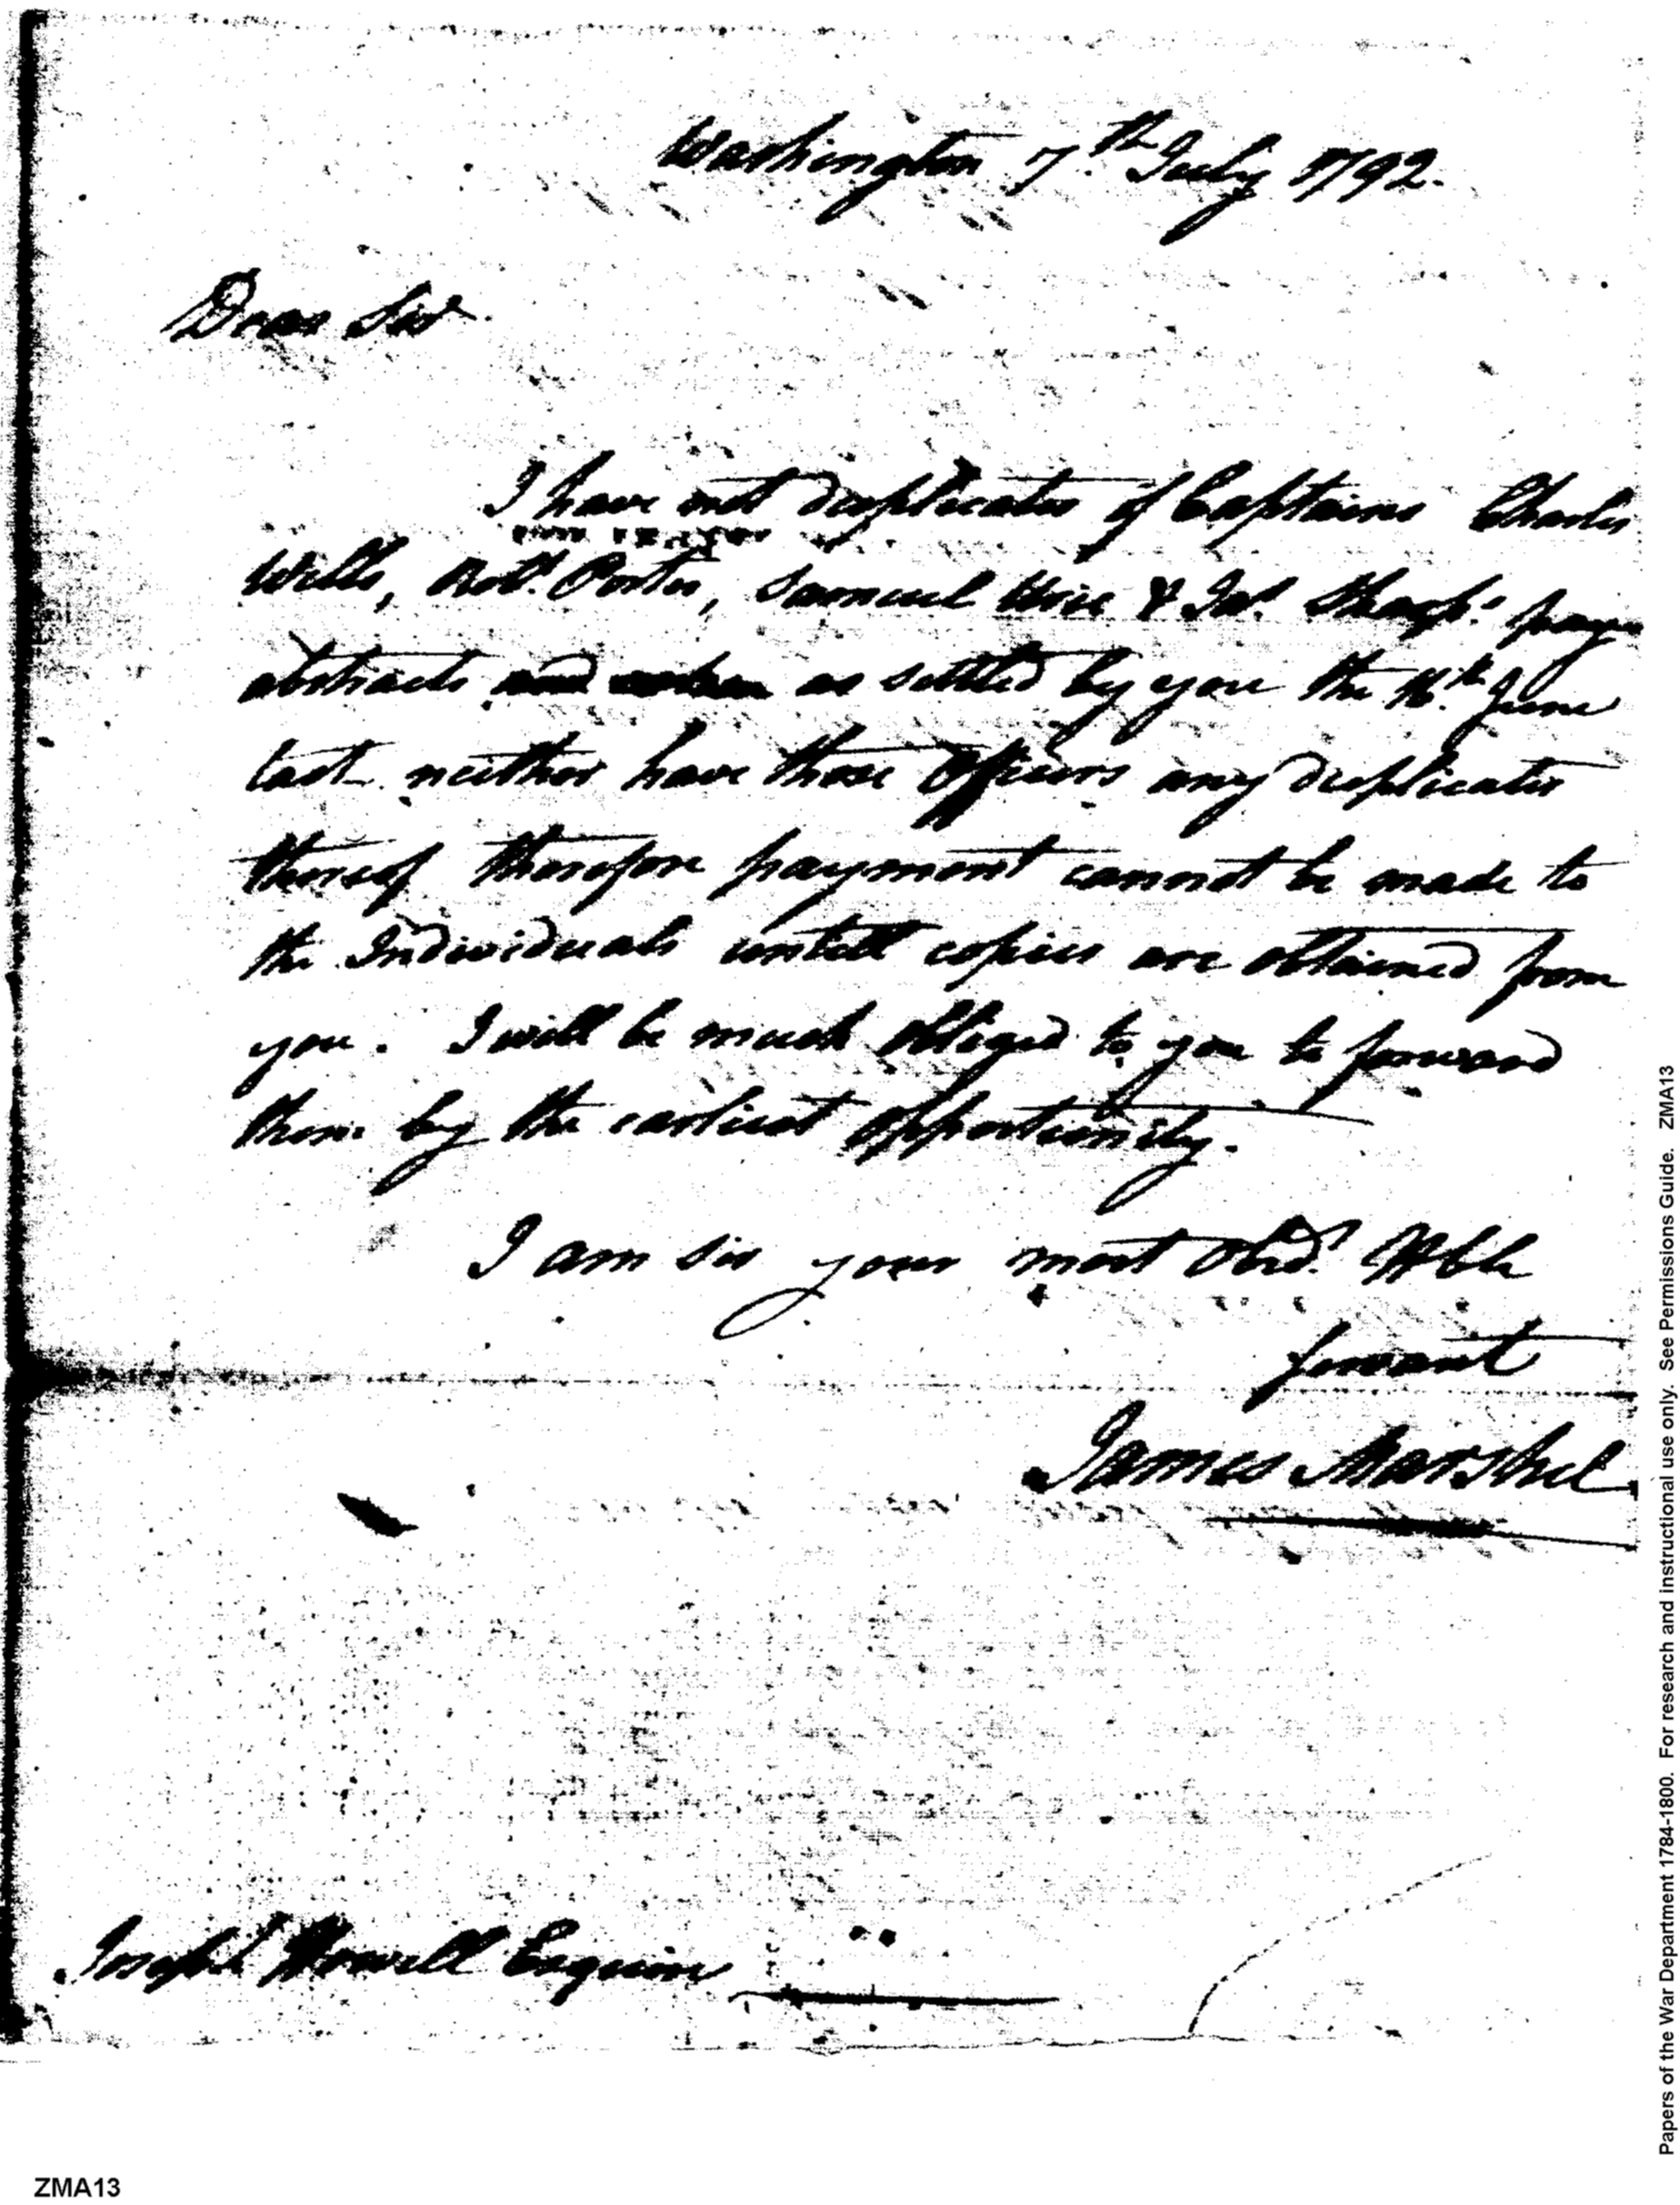 Washington 7th July 1792.
Dear Sir
I have not duplicates of Captains Charles
Wells, Robt. Porter, Samuel & Jas. Sharp's pay
abstracts as settled by you the 16th. June
last neither have those Officers any duplicates
thereof therefore payment cannot be made to
the Individuals untill copies are obtained from
you. I will be much obliged to you to forward
them by the earliest opportunity.
I am Sir your most Obed. Hble
Servant
James Marshel
Joseph Howell Esquire
ZMA13
Papers of the War Department 1784-1800. For research and instructional use only. See Permissions Guide. ZMA13